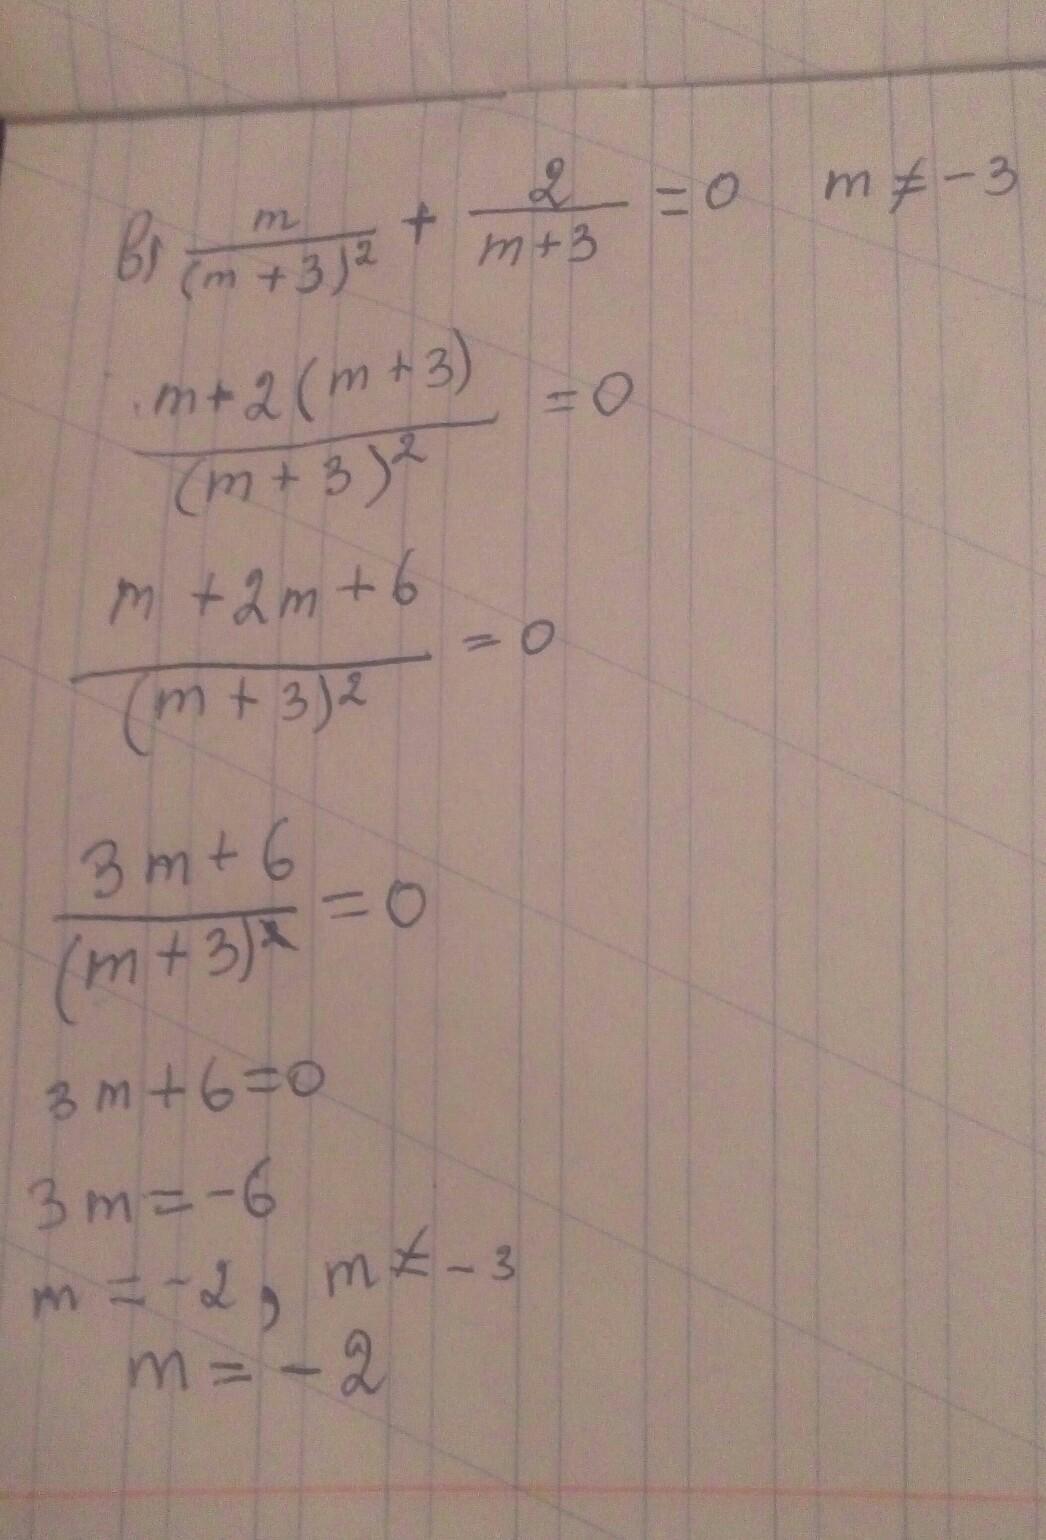 в) m/(m+3)² + 2/(m+3) = 0   m ≠ -3
(m+2(m+3))/(m+3)² = 0
(m+2m+6)/(m+3)² = 0
(3m+6)/(m+3)² = 0
3m+6=0
3m=-6
m=-2, m≠-3
m=-2